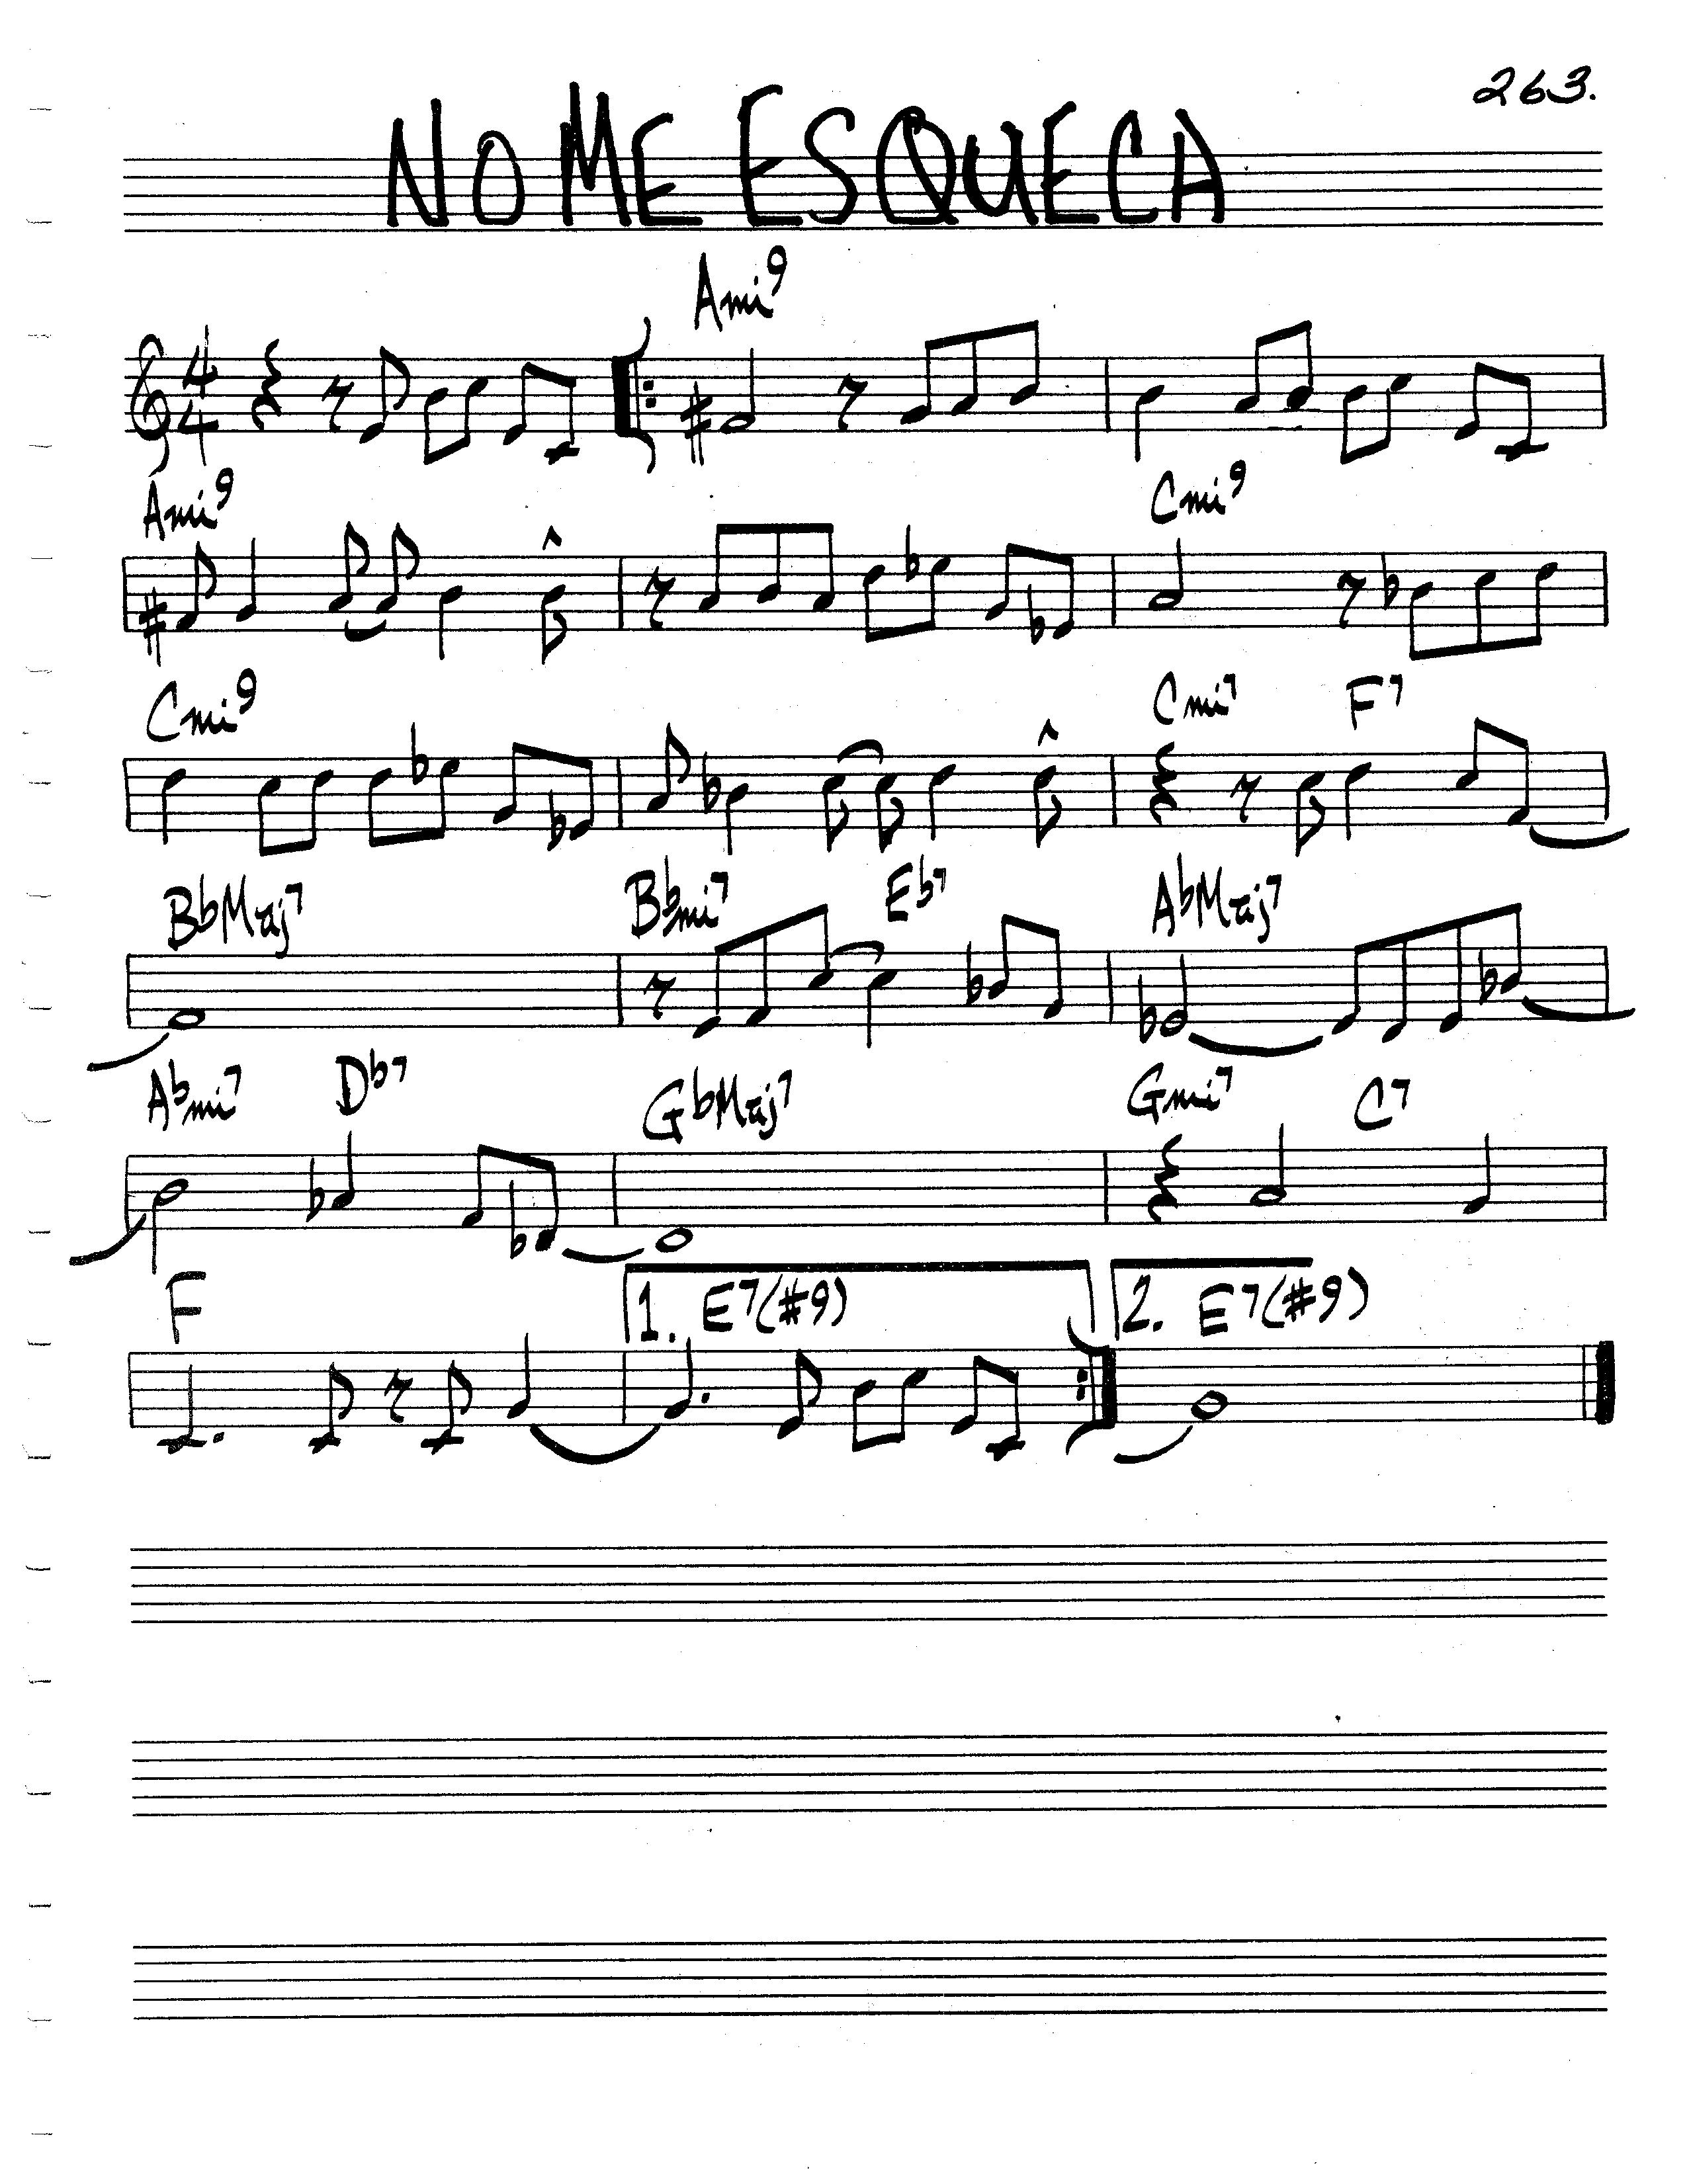 263.
NO ME ESQUECA
Ami9
4
4
Ami9 Cmi9
Cmi9 Cmi7 F7
BbMaj7 Bbmi7 Eb7 AbMaj7
Abmi7 Db7 GbMaj7 Gmi7 C7
F 1. E7(#9) 2. E7(#9)